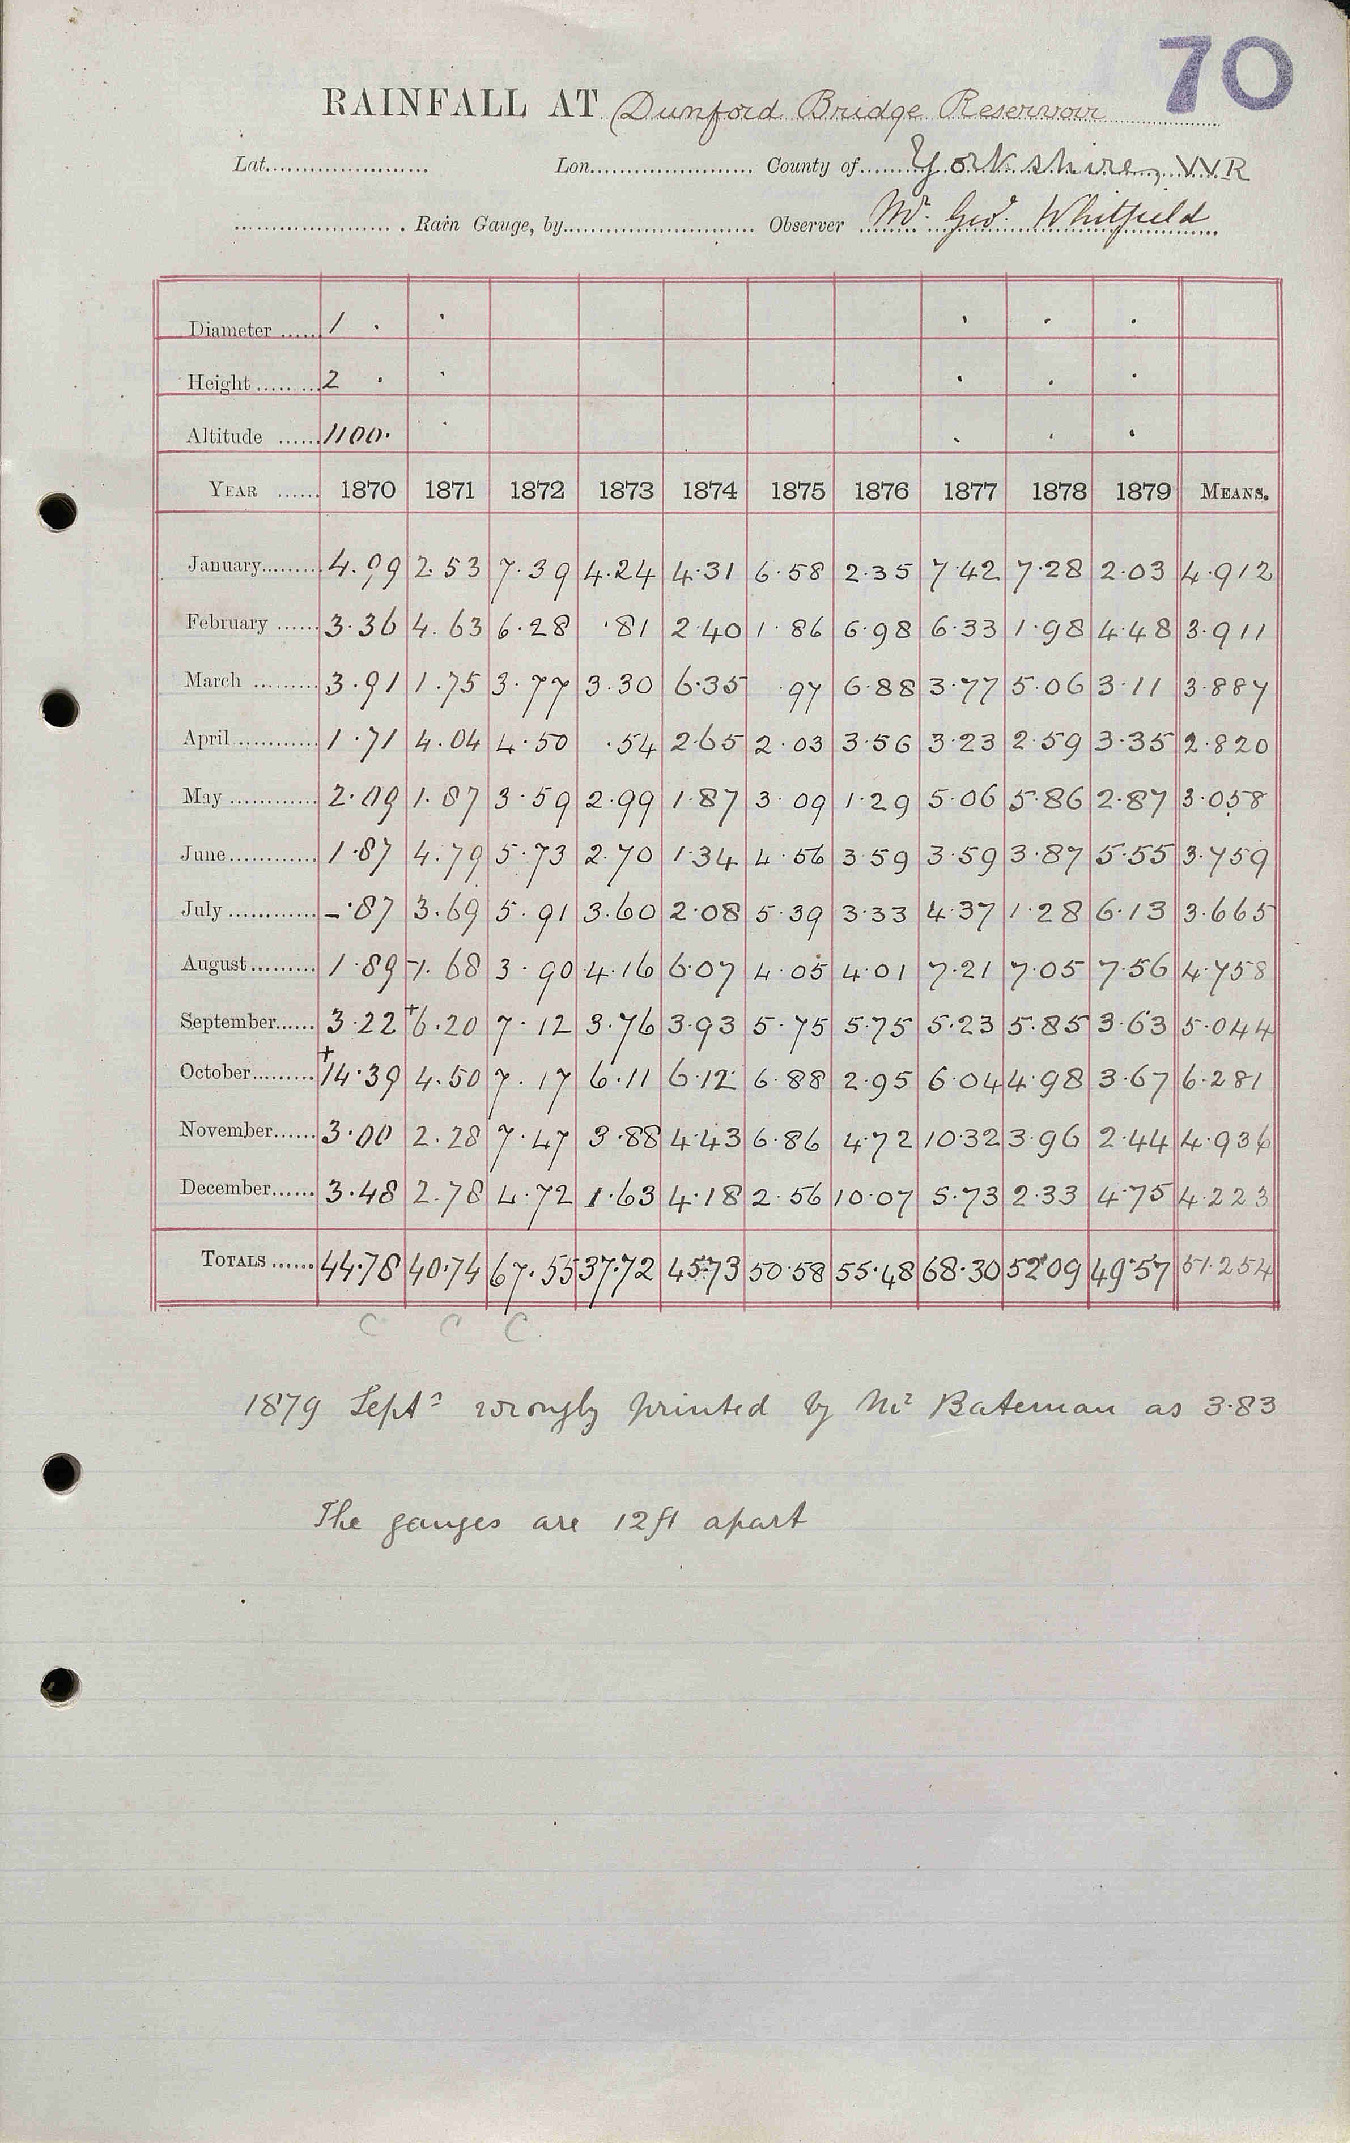 70
RAINFALL AT Dunford Bridge Reservoir
Lat. Lon. County of Yorkshire, W R
Rain Gauge, by Observer Mr. Geo. Whitfield
Diameter 1
Height 2
Altitude 1100.
YEAR 1870 1871 1872 1873 1874 1875 1876 1877 1878 1879 MEANS.
January 4.99 2.53 7.39 4.24 4.31 6.58 2.35 7.42 7.28 2.03 4.912
February 3.36 4.63 6.28 .81 2.40 1.86 6.98 6.33 1.98 4.48 3.911
March 3.91 1.75 3.77 3.30 6.35 .97 6.88 3.77 5.06 3.11 3.887
April 1.71 4.04 4.50 .54 2.65 2.03 3.56 3.23 2.59 3.35 2.820
May 2.09 1.87 3.59 2.99 1.87 3.09 1.29 5.06 5.86 2.87 3.058
June 1.87 4.79 5.73 2.70 1.34 4.56 3.59 3.59 3.87 5.55 3.759
July -.87 3.69 5.91 3.60 2.08 5.39 3.33 4.37 1.28 6.13 3.665
August 1.89 1.68 3.90 4.16 6.07 4.05 4.01 7.21 7.05 7.56 4.758
September 3.22 +6.20 7.12 3.76 3.93 5.75 5.75 5.23 5.85 3.63 5.044
October +14.39 4.50 7.17 6.11 6.12 6.88 2.95 6.04 4.98 3.67 6.281
November 3.00 2.28 7.47 3.88 4.43 6.86 4.72 10.32 3.96 2.44 4.936
December 3.48 2.78 4.72 1.63 4.18 2.56 10.07 5.73 2.33 4.75 4.223
TOTALS 44.78 40.74 67.55 37.72 45.73 50.58 55.48 68.30 52.09 49.57 51.254
C C C.
1879 Septr wrongly printed by Mr Bateman as 3.83
The gauges are 12ft apart